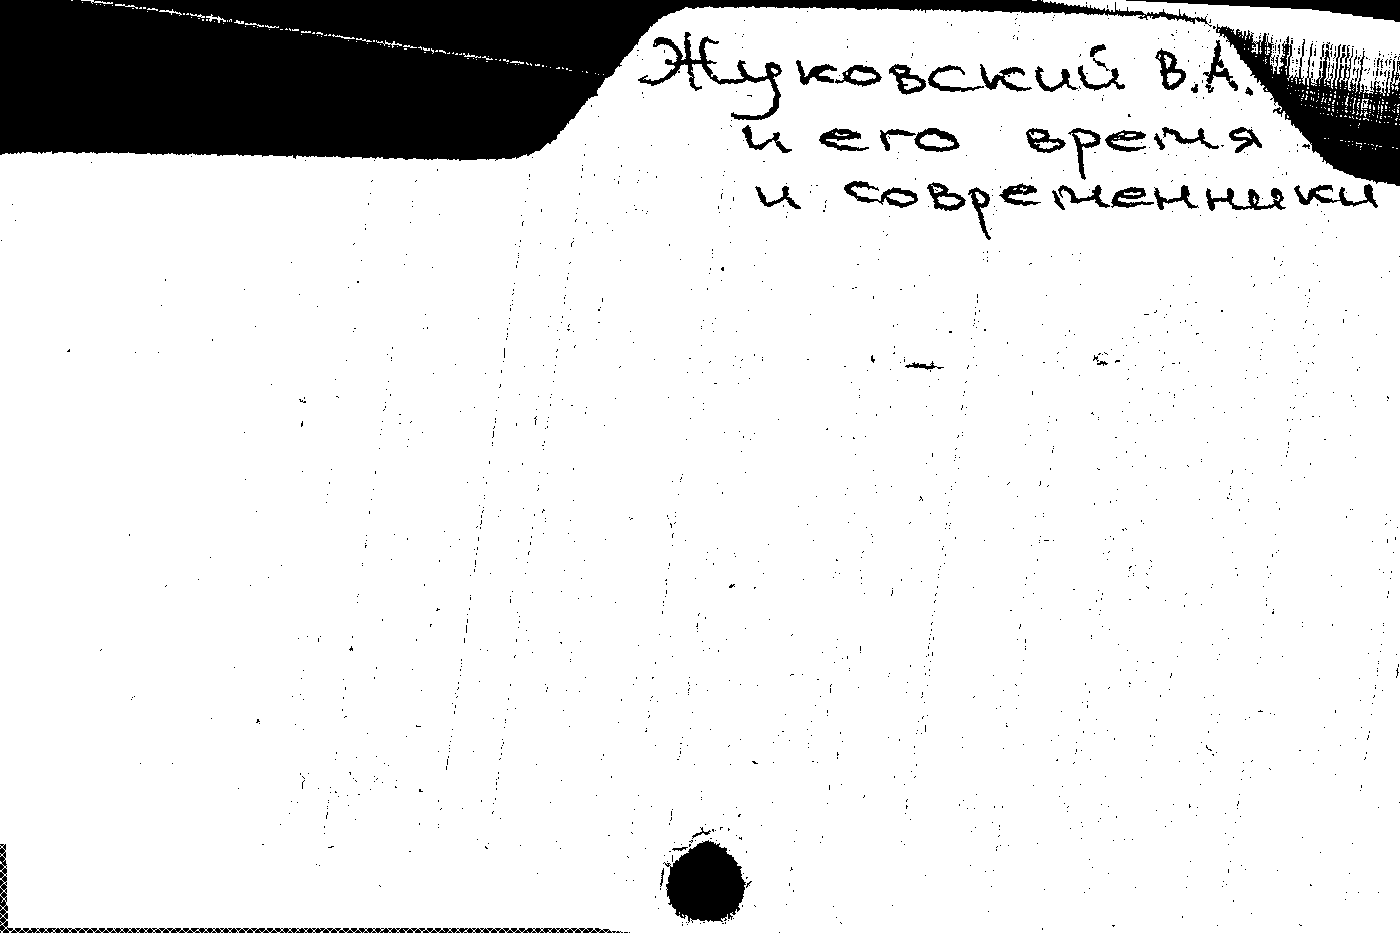 Жуковский В.А.
и его время
и современники